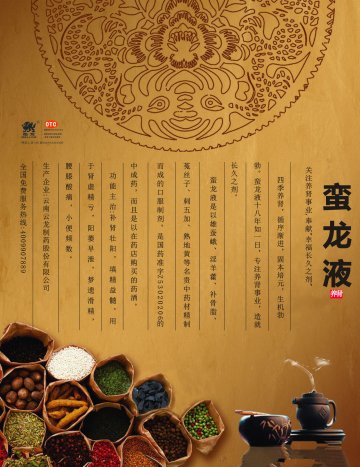 蛮龙液
养肾
关注养肾事业 奉献幸福长久之剂。
四季养肾，循序渐进，固本培元，生机勃
勃，蛮龙液十八年如一日，专注养肾事业，造就
长久之剂。
蛮龙液是以雄蚕蛾、淫羊藿、补骨脂、
菟丝子、刺五加、熟地黄等名贵中药材精制
而成的口服制剂，是国药准字Z53020206的
中成药，而且是以在药店购买的药酒。
功能主治：补肾壮阳，填精益髓，用
于肾虚精亏，阳萎早泄，梦遗滑精，
腰膝酸痛，小便频数。
生产企业：云南云龙制药股份有限公司
全国免费服务热线：4009907889
OTC